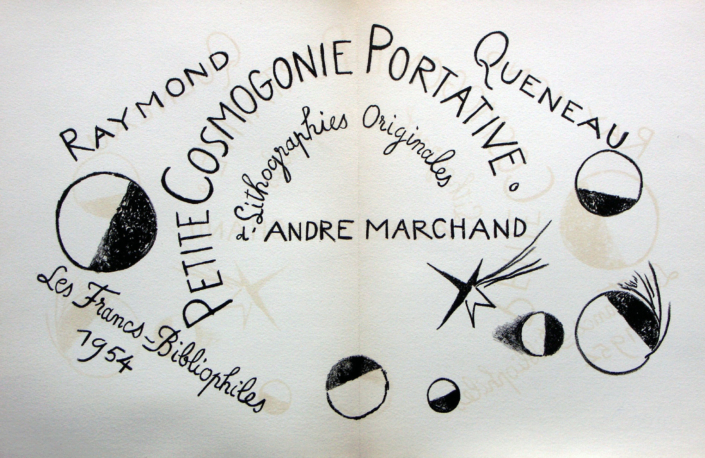 RAYMOND QUENEAU
PETITE COSMOGONIE PORTATIVE.
Lithographies Originales
d'ANDRE MARCHAND
Les Francs-Bibliophiles
1954